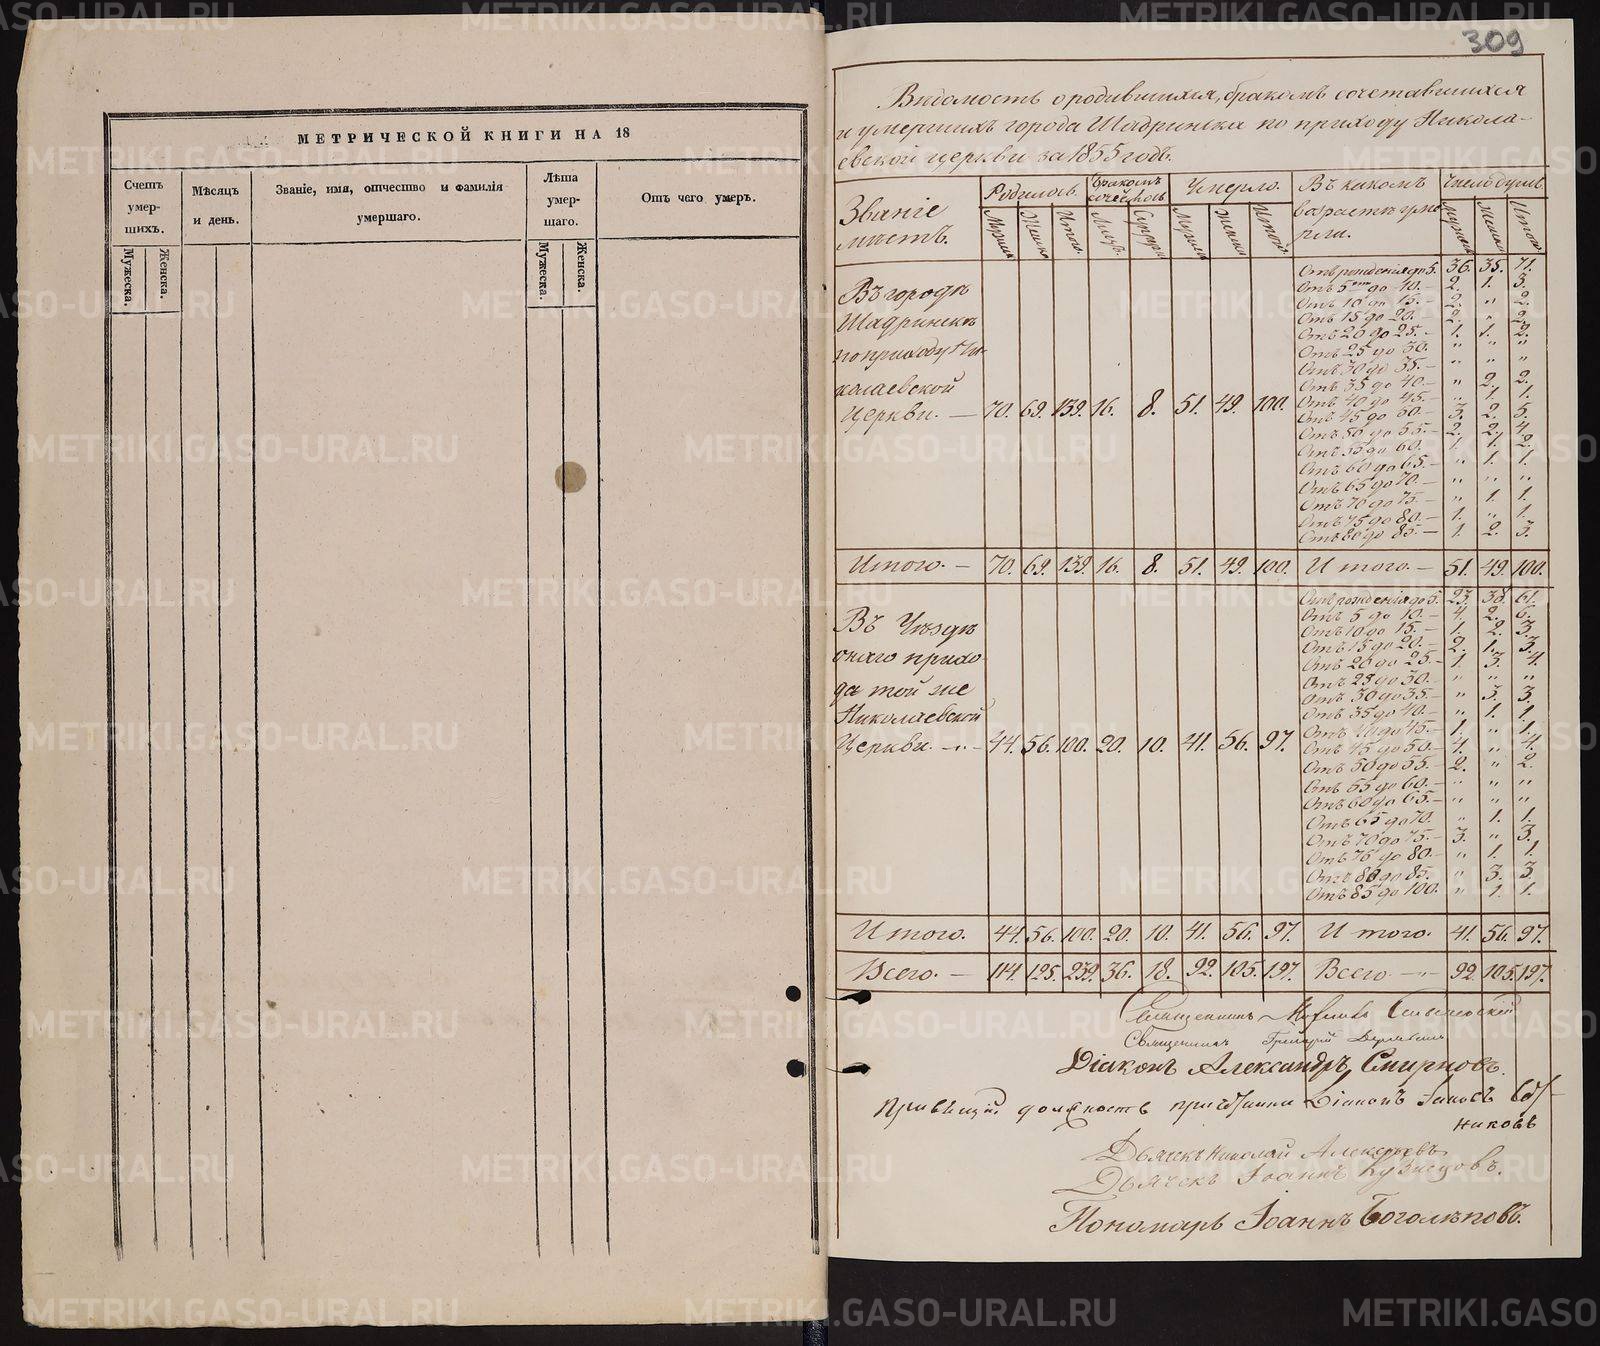 МЕТРИЧЕСКОЙ КНИГИ НА 18
Счетъ умер-шихъ.
Мужеска.
Женска.
Мѣсяцъ и день.
Званіе, имя, отчество и фамилія умершаго.
Лѣта умер-шаго.
Мужеска.
Женска.
Отъ чего умеръ.
309
Вѣдомость о родившихся, бракомъ сочетавшихся
и умершихъ города Шадринска по приходу Никола-
евской церкви за 1855 годъ.
Званіе мѣстъ. Родилось. Бракомъ Умерло. Въ какомъ возрастѣ умерли. Число душъ.
Въ городѣ
Шадринскѣ
по приходу Ни-
колаевской
Церкви. — 70. 69. 139. 16. 8. 51. 49. 100.
Отъ рожденія до 5. 36. 35. 71.
Отъ 5 до 10. — 2. 1. 3.
Отъ 10 до 15. — 2. " 2.
Отъ 15 до 20. 2. " 2.
Отъ 20 до 25. — 1. 1. 2.
Отъ 25 до 30. " " "
Отъ 30 до 35. — " " "
Отъ 35 до 40. — " 2. 2.
Отъ 40 до 45. — " 1. 1.
Отъ 45 до 50. — 3. 2. 5.
Отъ 50 до 55. — 2. 2. 4.
Отъ 55 до 60. — 1. 1. 2.
Отъ 60 до 65. — " 1. 1.
Отъ 65 до 70. — " " "
Отъ 70 до 75. — " 1. 1.
Отъ 75 до 80. — 1. " 1.
Отъ 80 до 85. — 1. 2. 3.
Итого. — 70. 69. 139. 16. 8. 51. 49. 100. Итого. — 51. 49. 100.
Въ Уѣздѣ
онаго прихо-
да той же
Николаевской
Церкви. — " — 44. 56. 100. 20. 10. 41. 56. 97.
Отъ рожденія до 5. 23. 38. 61.
Отъ 5 до 10. — 4. 2. 6.
Отъ 10 до 15. — 1. 2. 3.
Отъ 15 до 20. — 2. 1. 3.
Отъ 20 до 25. — 1. 3. 4.
Отъ 25 до 30. — " " "
Отъ 30 до 35. — " 3. 3.
Отъ 35 до 40. — " 1. 1.
Отъ 40 до 45. — 1. " 1.
Отъ 45 до 50. — 4. " 4.
Отъ 50 до 55. — 2. " 2.
Отъ 55 до 60. — " " "
Отъ 60 до 65. — " " "
Отъ 65 до 70. " 1. 1.
Отъ 70 до 75. — 3. " 3.
Отъ 75 до 80. — " 1. 1.
Отъ 80 до 85. " 3. 3.
Отъ 85 до 100. " 1. 1.
Итого. 44. 56. 100. 20. 10. 41. 56. 97. Итого. 41. 56. 97.
Всего. — 114. 125. 239. 36. 18. 92. 105. 197. Всего — " 92. 105. 197.
Священникъ
Священникъ Григорій
Діаконъ Александръ Смирновъ.
должность Діаконъ
никовъ
Дьячекъ Николай Алексѣевъ
Дьячекъ Іоаннъ Кузнецовъ.
Пономарь Іоаннъ Боголѣповъ.
METRIKI.GASO-URAL.RU